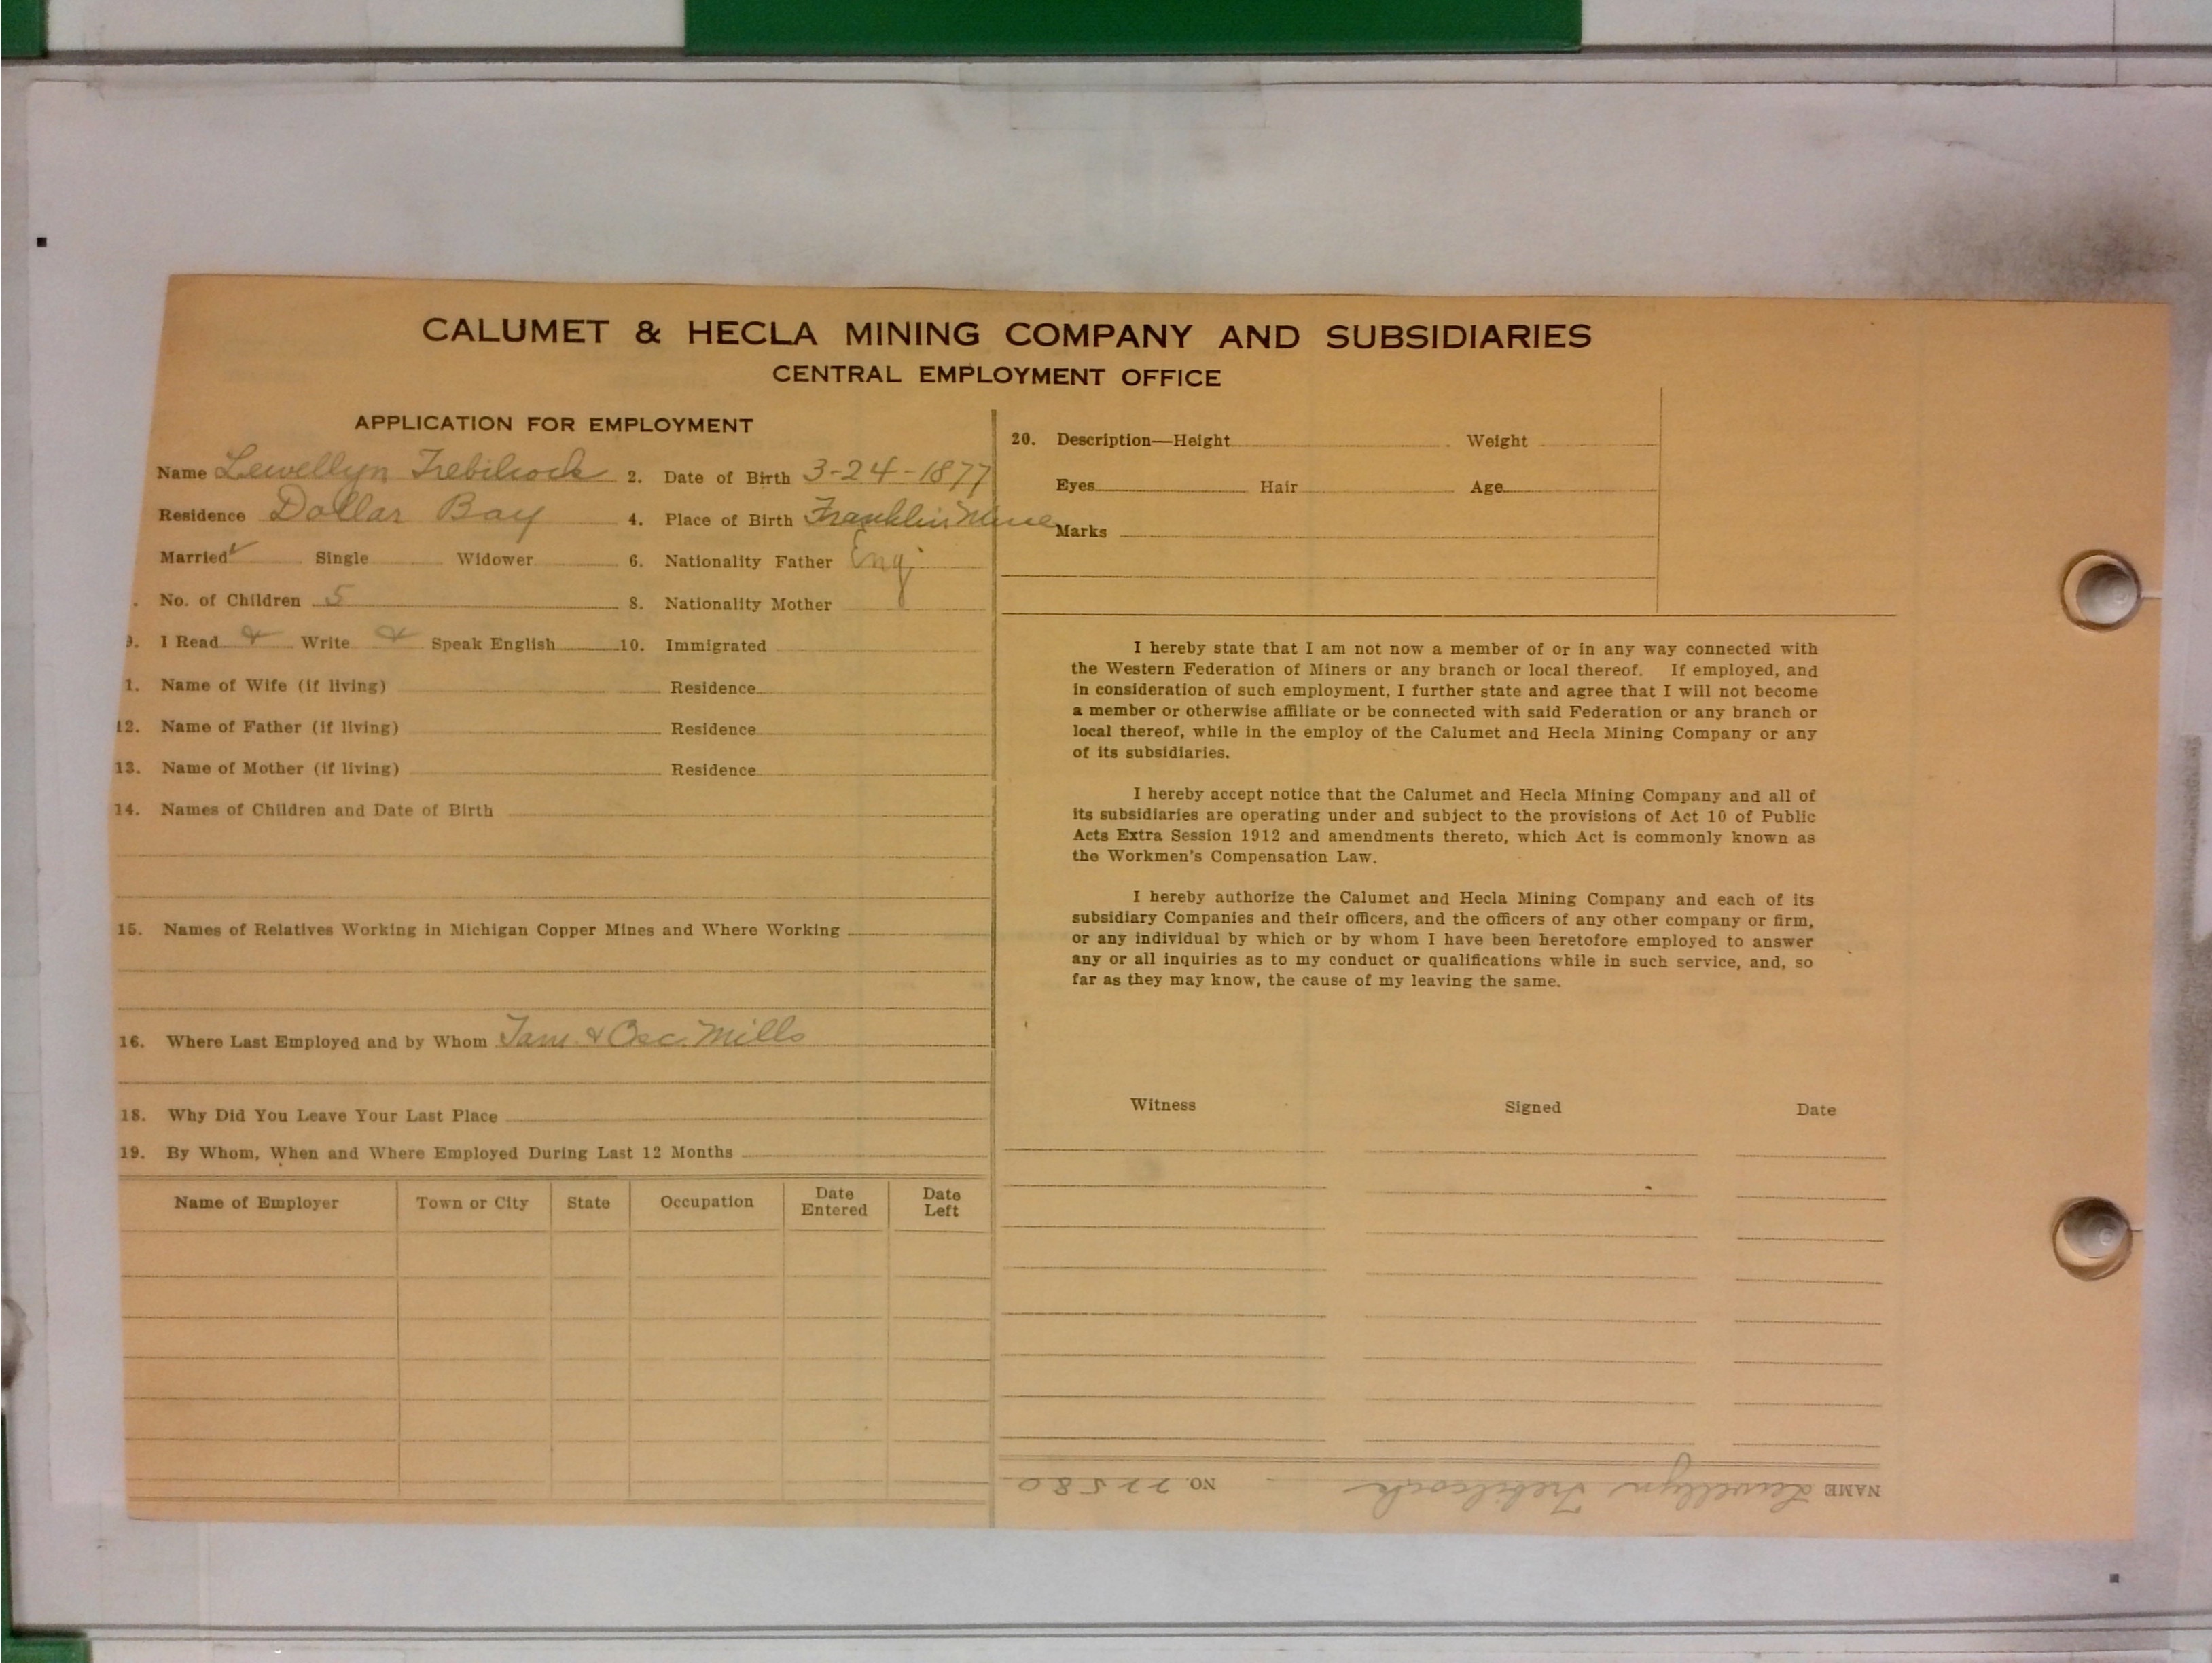 CALUMET & HECLA MINING COMPANY AND SUBSIDIARIES
CENTRAL EMPLOYMENT OFFICE
APPLICATION FOR EMPLOYMENT
Name Lewellyn Trebilcock 2. Date of Birth 3-24-1877
Residence Dollar Bay 4. Place of Birth Franklin Mine
Married ✓ Single Widower 6. Nationality Father Eng.
No. of Children 5 8. Nationality Mother
9. I Read & Write & Speak English 10. Immigrated
1. Name of Wife (if living) Residence
12. Name of Father (if living) Residence
13. Name of Mother (if living) Residence
14. Names of Children and Date of Birth
15. Names of Relatives Working in Michigan Copper Mines and Where Working
16. Where Last Employed and by Whom Tam. & Osc. Mills
18. Why Did You Leave Your Last Place
19. By Whom, When and Where Employed During Last 12 Months
Name of Employer Town or City State Occupation Date Entered Date Left
20. Description—Height Weight
Eyes Hair Age
Marks
I hereby state that I am not now a member of or in any way connected with
the Western Federation of Miners or any branch or local thereof. If employed, and
in consideration of such employment, I further state and agree that I will not become
a member or otherwise affiliate or be connected with said Federation or any branch or
local thereof, while in the employ of the Calumet and Hecla Mining Company or any
of its subsidiaries.
I hereby accept notice that the Calumet and Hecla Mining Company and all of
its subsidiaries are operating under and subject to the provisions of Act 10 of Public
Acts Extra Session 1912 and amendments thereto, which Act is commonly known as
the Workmen's Compensation Law.
I hereby authorize the Calumet and Hecla Mining Company and each of its
subsidiary Companies and their officers, and the officers of any other company or firm,
or any individual by which or by whom I have been heretofore employed to answer
any or all inquiries as to my conduct or qualifications while in such service, and, so
far as they may know, the cause of my leaving the same.
Witness Signed Date
NAME Lewellyn Trebilcock NO. 22580